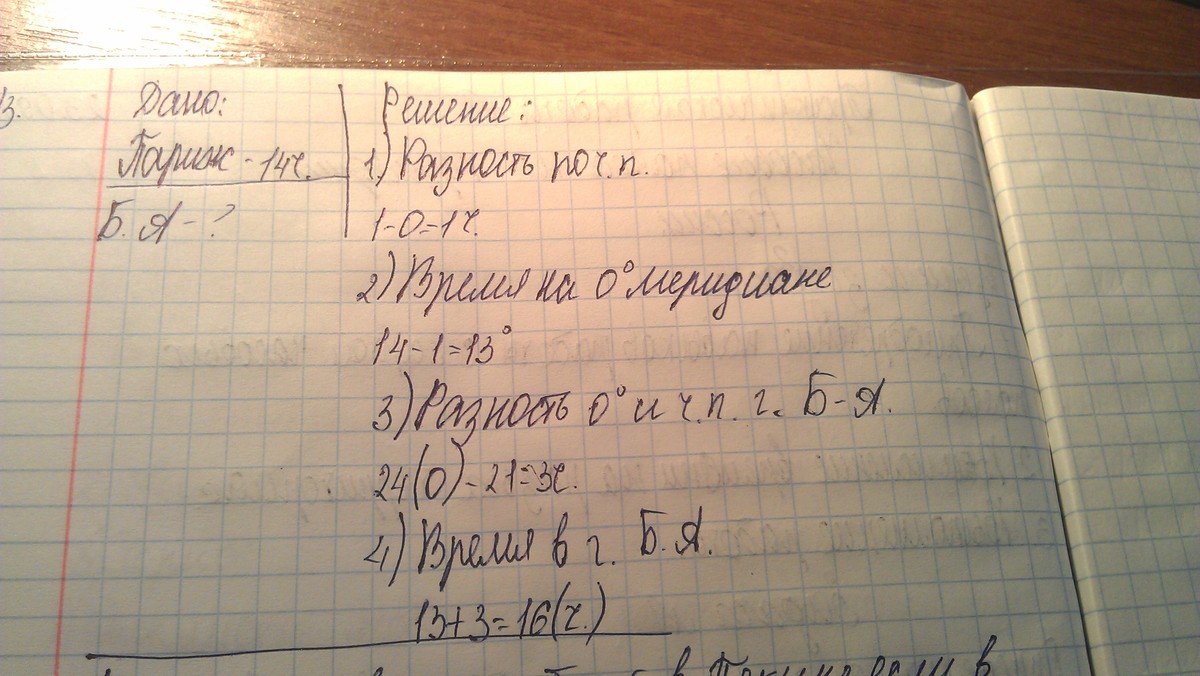 3.
Дано:
Париж - 14ч.
Б. А - ?
Решение:
1) Разность по ч.п.
1-0=1ч.
2) Время на 0° меридиане
14-1=13°
3) Разность 0° и ч.п. г. Б-А.
24(0)-21=3ч.
4) Время в г. Б.А.
13+3=16(ч.)
в